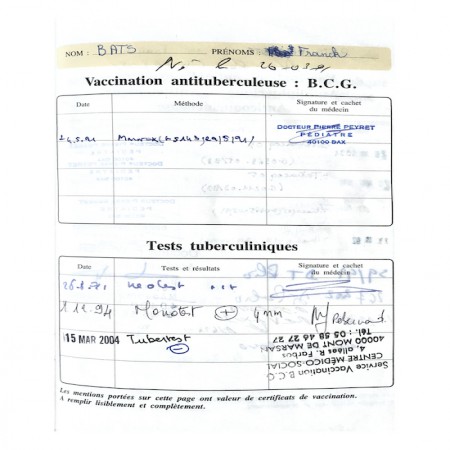 NOM : BATS PRÉNOMS : Franck
Né le 26-03-91
Vaccination antituberculeuse : B.C.G.
Date Méthode Signature et cachet du médecin
24.5.91
DOCTEUR PIERRE PEYRET
PÉDIATRE
40100 DAX
Tests tuberculiniques
Date Tests et résultats Signature et cachet du médecin
neotest
1 11.94 Monotest + 4mm
15 MAR 2004 Tubertest -
Service Vaccination B.C.G.
CENTRE MÉDICO-SOCIAL
4, allées R. Farbos
40000 MONT DE MARSAN
Tél. : 05 58 46 27 27
Les mentions portées sur cette page ont valeur de certificats de vaccination.
A remplir lisiblement et complètement.